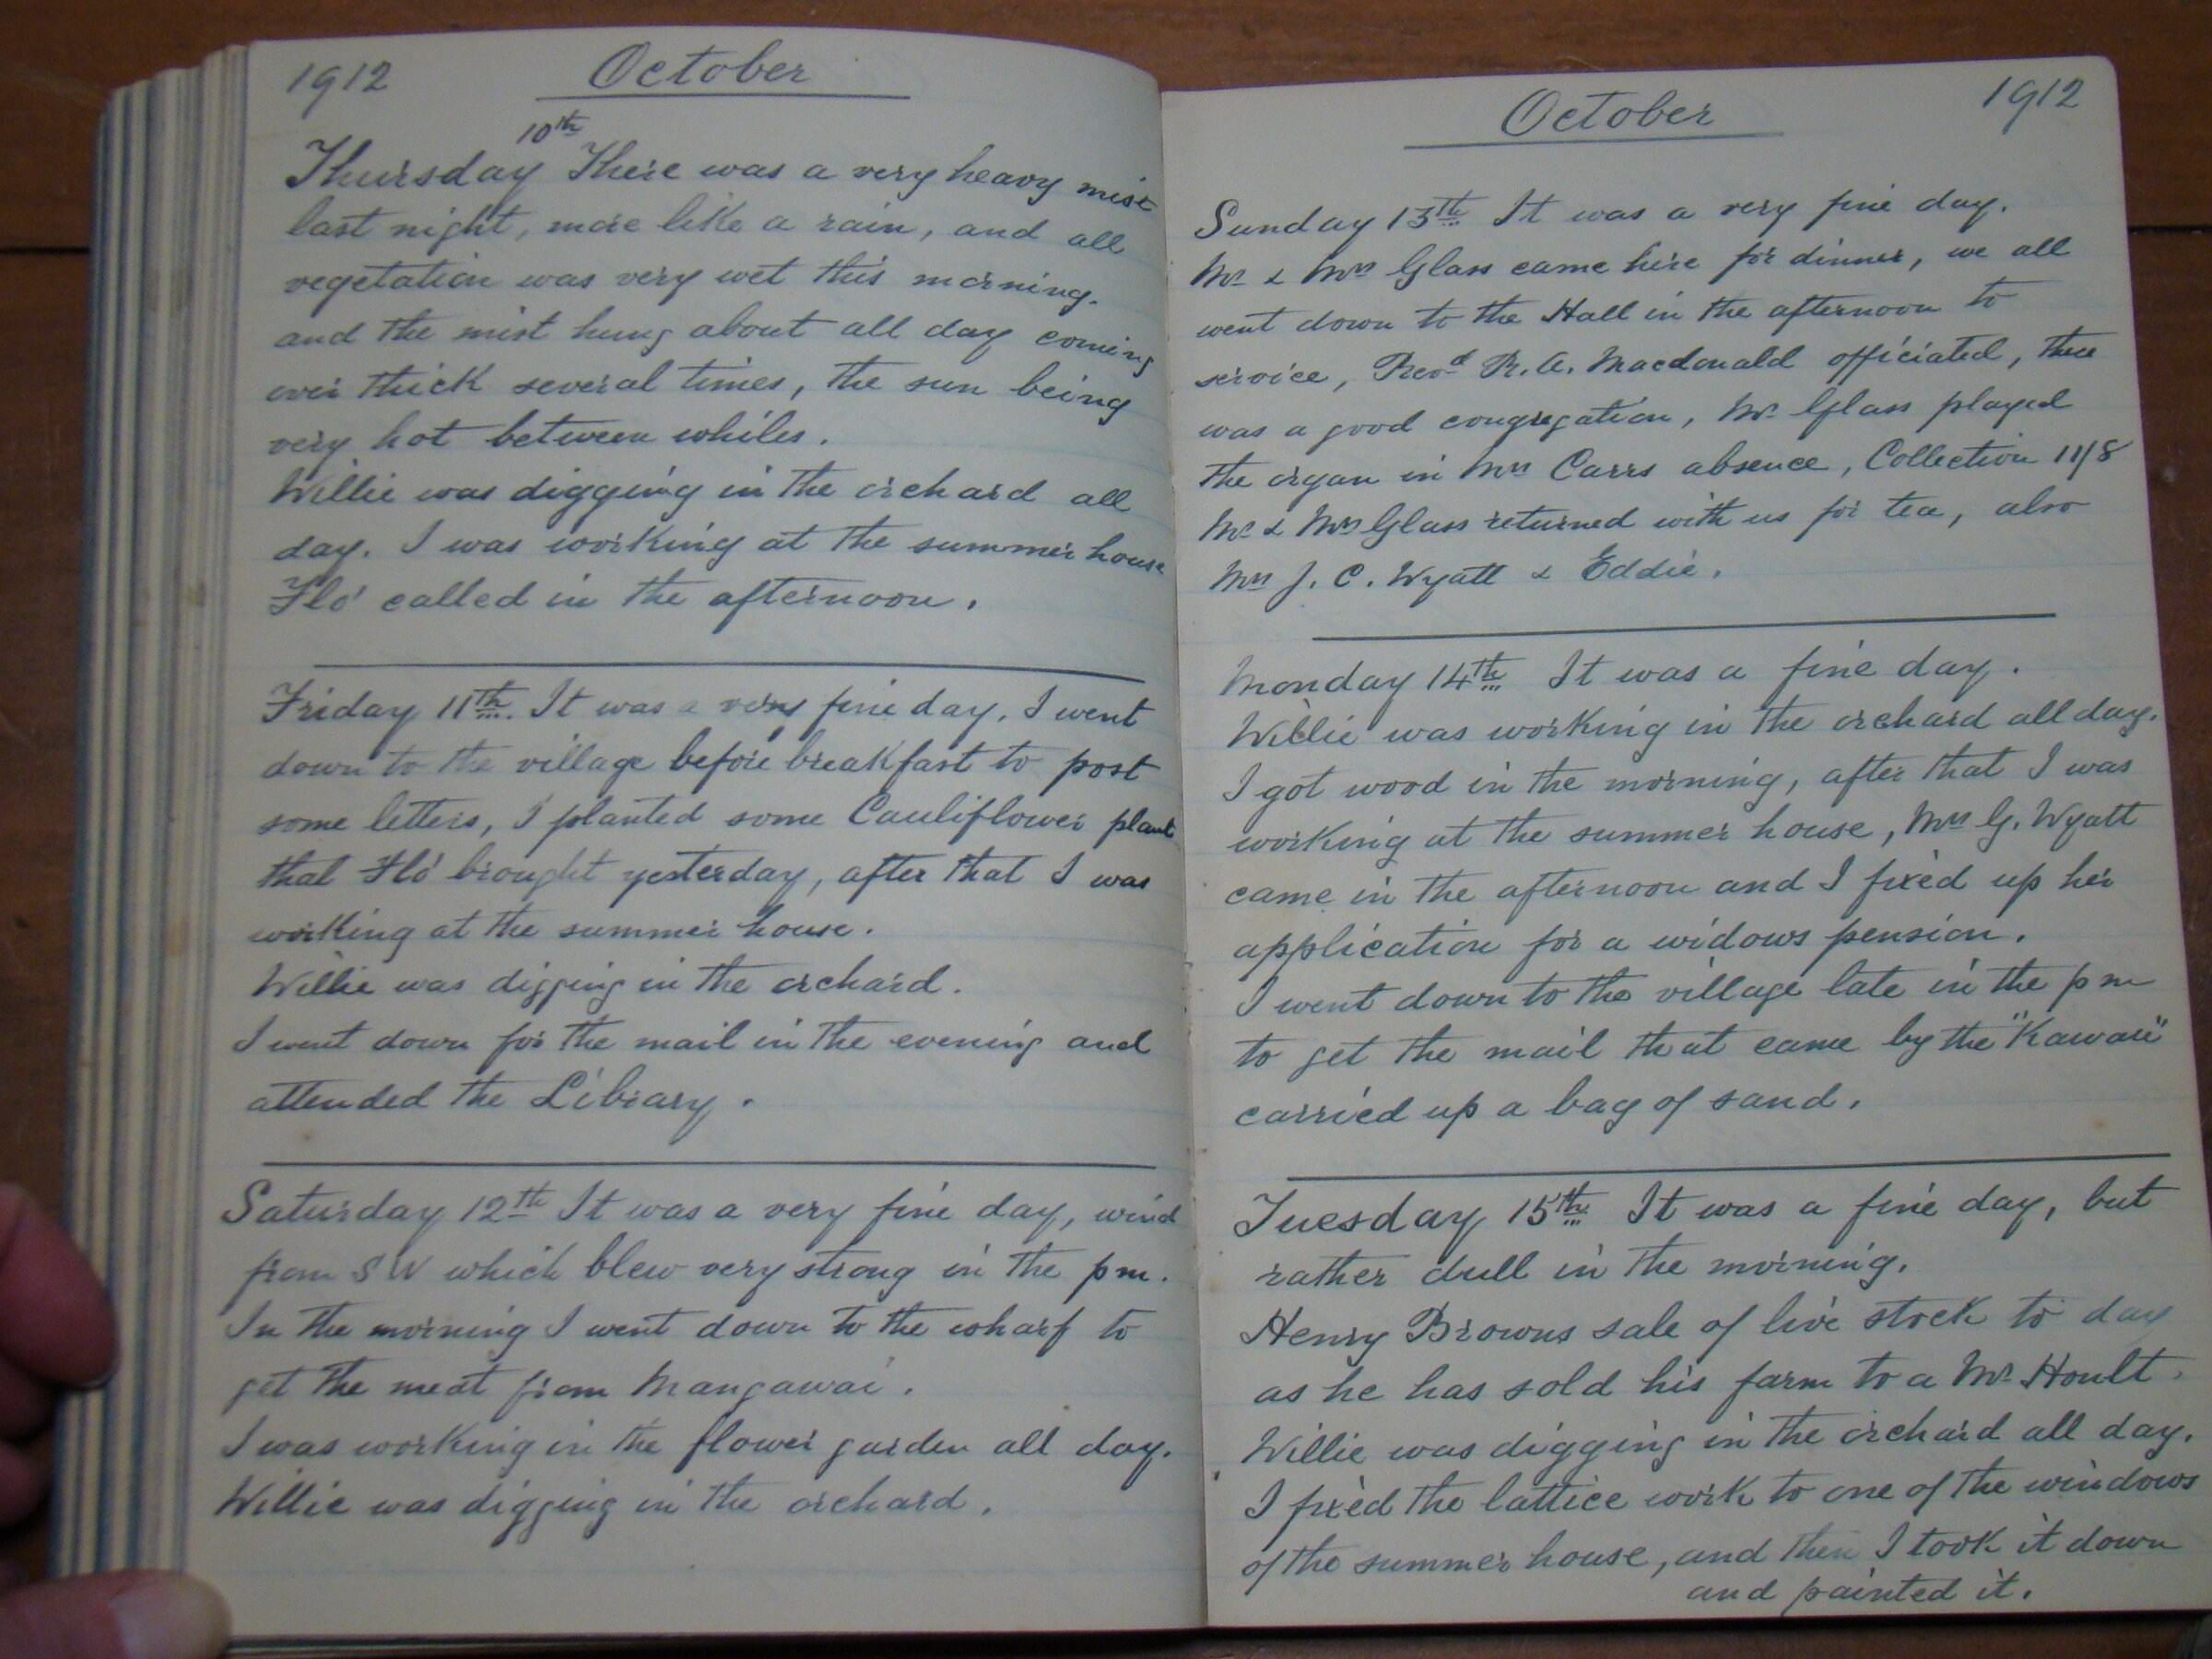 1912 October
10th
Thursday There was a very heavy mist
last night, more like a rain, and all
vegetation was very wet this morning.
and the mist hung about all day coming
over thick several times, the sun being
very hot between whiles.
Willie was digging in the orchard all
day. I was working at the summer house
Flo' called in the afternoon.
Friday 11th. It was a very fine day. I went
down to the village before breakfast to post
some letters, I planted some Cauliflower plants
that Flo' brought yesterday, after that I was
working at the summer house.
Willie was digging in the orchard.
I went down for the mail in the evening and
attended the Library.
Saturday 12th It was a very fine day, wind
from SW which blew very strong in the pm.
In the morning I went down to the wharf to
get the meat from Mangawai.
I was working in the flower garden all day.
Willie was digging in the orchard.
October 1912
Sunday 13th It was a very fine day.
Mr & Mrs Glass came here for dinner, we all
went down to the Hall in the afternoon to
service, Revd R. A. Macdonald officiated, there
was a good congregation, Mr Glass played
the organ in Mrs Carrs absence, Collection 11/8
Mr & Mrs Glass returned with us for tea, also
Mrs J. C. Wyatt & Eddie.
Monday 14th It was a fine day.
Willie was working in the orchard all day.
I got wood in the morning, after that I was
working at the summer house, Mrs G. Wyatt
came in the afternoon and I fixed up her
application for a widows pension.
I went down to the village late in the pm
to get the mail that came by the "Kawau"
carried up a bag of sand.
Tuesday 15th It was a fine day, but
rather dull in the morning.
Henry Browns sale of live stock to day
as he has sold his farm to a Mr Hoult.
Willie was digging in the orchard all day.
I fixed the lattice work to one of the windows
of the summer house, and then I took it down
and painted it.